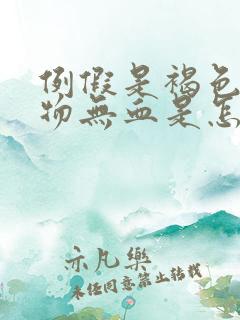 例假是褐色
物無血是怎
示凡樂
未经同意禁止转载